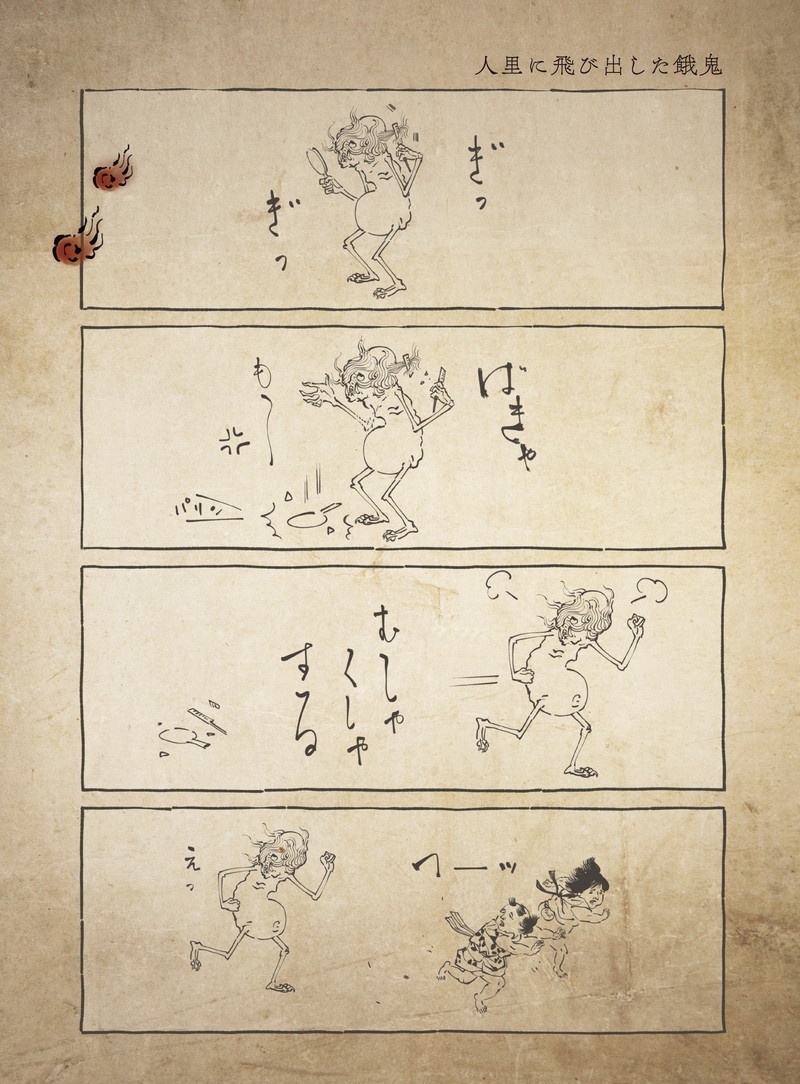 人里に飛び出した餓鬼
ぎっ
ぎっ
ばきゃ
も〜
パリン
むしゃ
くしゃ
する
えっ